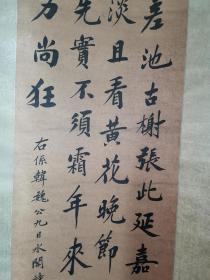 差池古榭張此延嘉
淡且看黃花晚節
先實不須霜年來
力尚狂
右係韓魏公九日水閣